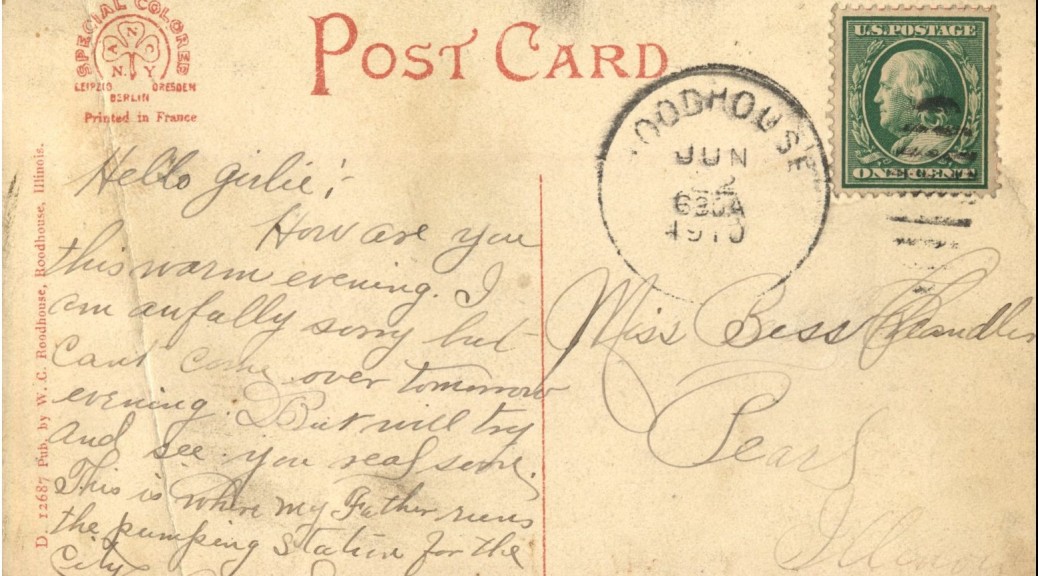 SPECIAL COLORED
A N C
N. Y
LEIPZIG DRESDEN
BERLIN
Printed in France
POST CARD
U.S. POSTAGE
ONE CENT
ROODHOUSE
JUN
2
630A
1910
D. 12687 Pub. by W. C. Roodhouse, Roodhouse, Illinois.
Hello girlie;-
How are you
this warm evening. I
am awfully sorry but
cant come over tomorrow
evening. But will try
and see you real soon.
This is where my Father runs
the pumping station for the
City
Miss Bess Chandler
Pearl
Illinois